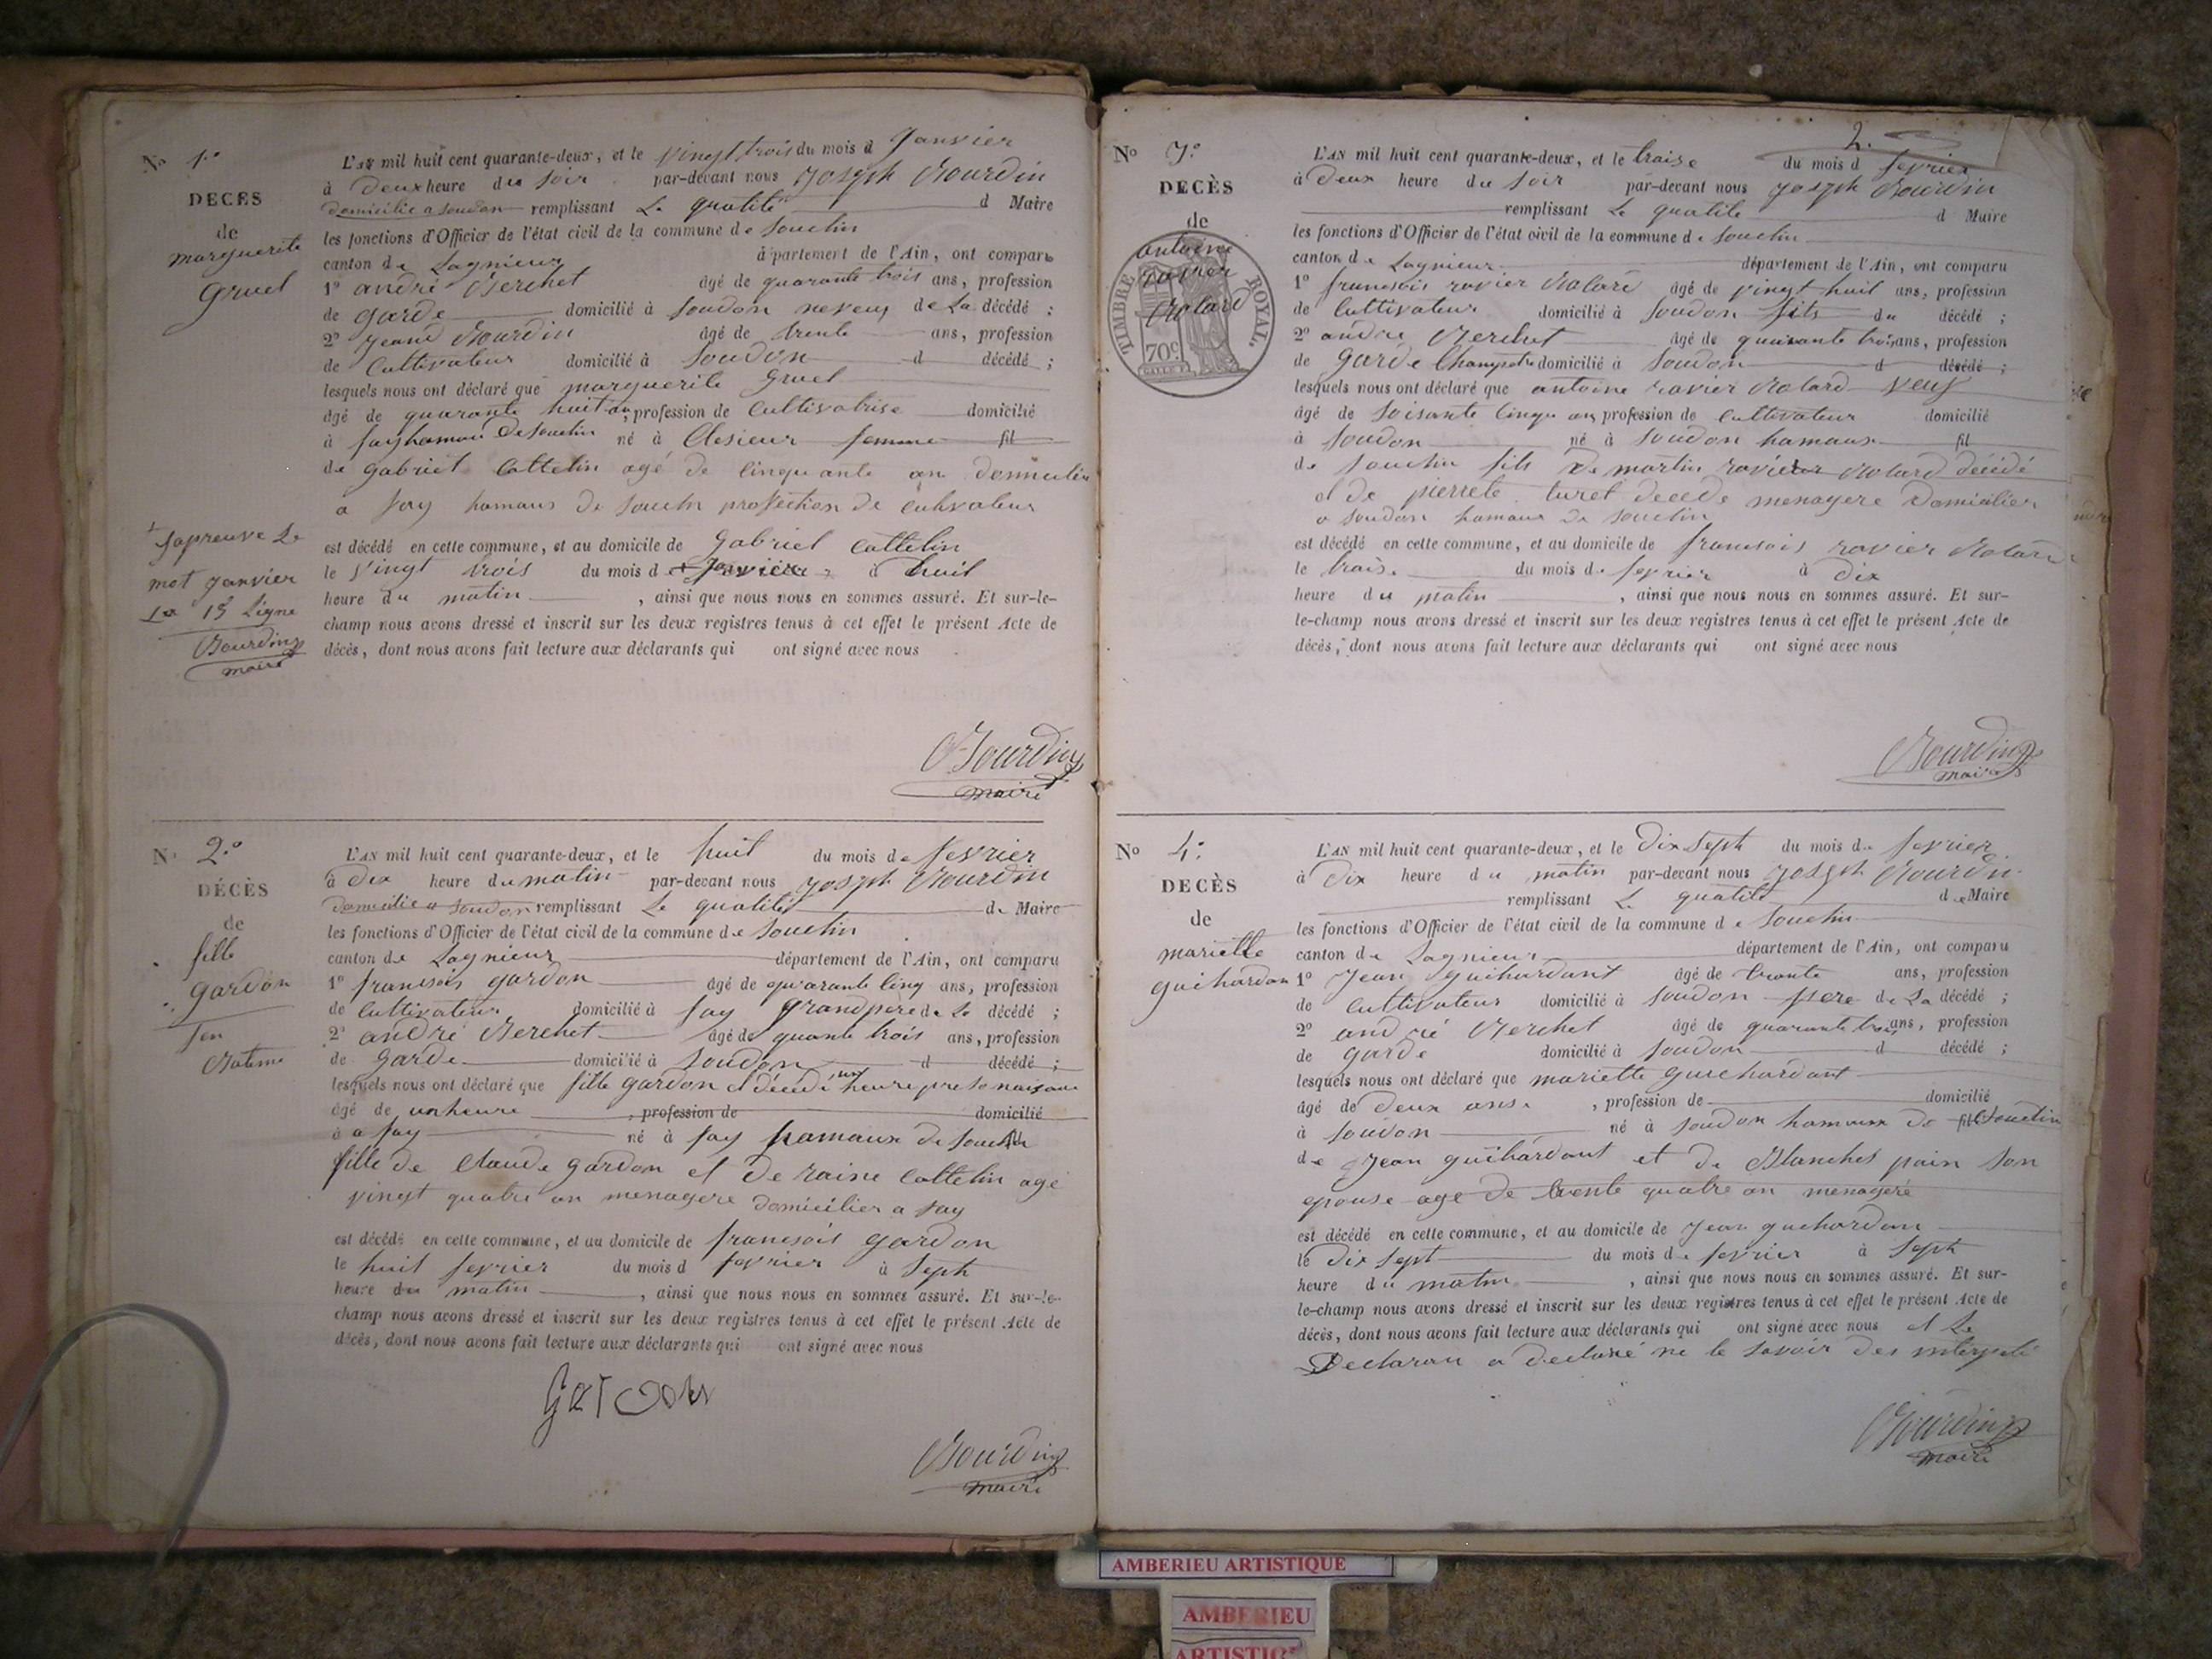 No 1º
DECES
de
marguerite
gruel
L'AN mil huit cent quarante-deux, et le vingt trois du mois d janvier
à deux heure du soir par-devant nous joseph Bourdin
domicilie a soudon remplissant Le qualité d Maire
les fonctions d'Officier de l'état civil de la commune de souclin
canton de Lagnieux département de l'Ain, ont comparu
1º andré Berchet âgé de quarante trois ans, profession
de garde domicilié à soudon neveux de La décédé ;
2º jean Bourdin âgé de trente ans, profession
de Cultivateur domicilié à soudon d décédé ;
lesquels nous ont déclaré que marguerite gruel
âgé de quarante huit an, profession de Cultivatrise domicilié
à fay hamau de souclin né à Clesieux femme fil
de gabriel Cottelin agé de Cinquante an domicilier
a fay hamaus de souclin profection de Cultivateur
est décédé en cette commune, et au domicile de gabriel Cottelin
le vingt trois du mois de janvier à huit
heure du matin , ainsi que nous nous en sommes assuré. Et sur-le-
champ nous avons dressé et inscrit sur les deux registres tenus à cet effet le présent Acte de
décès, dont nous avons fait lecture aux déclarants qui ont signé avec nous
japreuve Le
mot janvier
La 15 Ligne
Bourdin
maire
Bourdin
maire
No 2º
DÉCÈS
de
fille
gardon
sen
Bateme
L'AN mil huit cent quarante-deux, et le huit du mois de fevrier
à dix heure du matin par-devant nous joseph Bourdin
domicilie a soudon remplissant Le qualité de Maire
les fonctions d'Officier de l'état civil de la commune de souclin
canton de Lagnieux département de l'Ain, ont comparu
1º francsois gardon âgé de quarante cinq ans, profession
de Cultivateur domicilié à fay grandpere de Le décédé ;
2º andré Berchet âgé de quante trois ans, profession
de garde domicilié à soudon d décédé ;
lesquels nous ont déclaré que fille gardon et décédé un heure pre sonaisance
âgé de un heure , profession de domicilié
à a fay né à fay hamaux de souclin
fille de Claude gardon et de raine Cottelin age
vingt quatre an menagere domicilier a fay
est décédé en cette commune, et au domicile de francsois gardon
le huit fevrier du mois d fevrier à seph
heure du matin , ainsi que nous nous en sommes assuré. Et sur-le-
champ nous avons dressé et inscrit sur les deux registres tenus à cet effet le présent Acte de
décès, dont nous avons fait lecture aux déclarants qui ont signé avec nous
Gardon
Bourdin
maire
2.
No 3º
DECÈS
de
antoine
ravier
Bolard
TIMBRE ROYAL
70 c.
L'AN mil huit cent quarante-deux, et le traise du mois d fevrier
à deux heure du soir par-devant nous joseph Bourdin
remplissant Le qualite d Maire
les fonctions d'Officier de l'état civil de la commune de souclin
canton de Lagnieux département de l'Ain, ont comparu
1º francsois ravier Bolard âgé de vingt huit ans, profession
de Cultivateur domicilié à soudon fils du décédé ;
2º andre Berchet âgé de quarante trois ans, profession
de garde Champetre domicilié à soudon d décédé ;
lesquels nous ont déclaré que antoine ravier Bolard veuf
âgé de soisante Cinq an, profession de Cultivateur domicilié
à soudon né à soudon hamaux fil
de souclin fils de martin ravier Bolard décédé
et de pierrete turel decede menagere domicilier
a soudon hamaux de souclin
est décédé en cette commune, et au domicile de francsois ravier Bolard
le traise du mois de fevrier à dix
heure du matin , ainsi que nous nous en sommes assuré. Et sur-
le-champ nous avons dressé et inscrit sur les deux registres tenus à cet effet le présent Acte de
décès, dont nous avons fait lecture aux déclarants qui ont signé avec nous
Bourdin
maire
No 4º
DECÈS
de
mariette
guihardon
L'AN mil huit cent quarante-deux, et le dix seph du mois de fevrier
à dix heure du matin par-devant nous joseph Bourdin
remplissant Le qualité de Maire
les fonctions d'Officier de l'état civil de la commune de souclin
canton de Lagnieux département de l'Ain, ont comparu
1º jean guihardant âgé de trante ans, profession
de cultivateur domicilié à soudon pere de La décédé ;
2º andré Berchet âgé de quarante trois ans, profession
de garde domicilié à soudon d décédé ;
lesquels nous ont déclaré que mariette guichardant
âgé de deux ans , profession de domicilié
à soudon né à soudon hamaux de fil souclin
de jean guihardant et de Blanchet pain son
epouse age de trente quatre an menageré
est décédé en cette commune, et au domicile de jean guehardon
le dix seph du mois de fevrier à seph
heure du matin , ainsi que nous nous en sommes assuré. Et sur-
le-champ nous avons dressé et inscrit sur les deux registres tenus à cet effet le présent Acte de
décès, dont nous avons fait lecture aux déclarants qui ont signé avec nous et Le
Declaran a declaré ne le savoir des interpelé
Bourdin
maire
AMBERIEU ARTISTIQUE
AMBERIEU
ARTISTIQUE